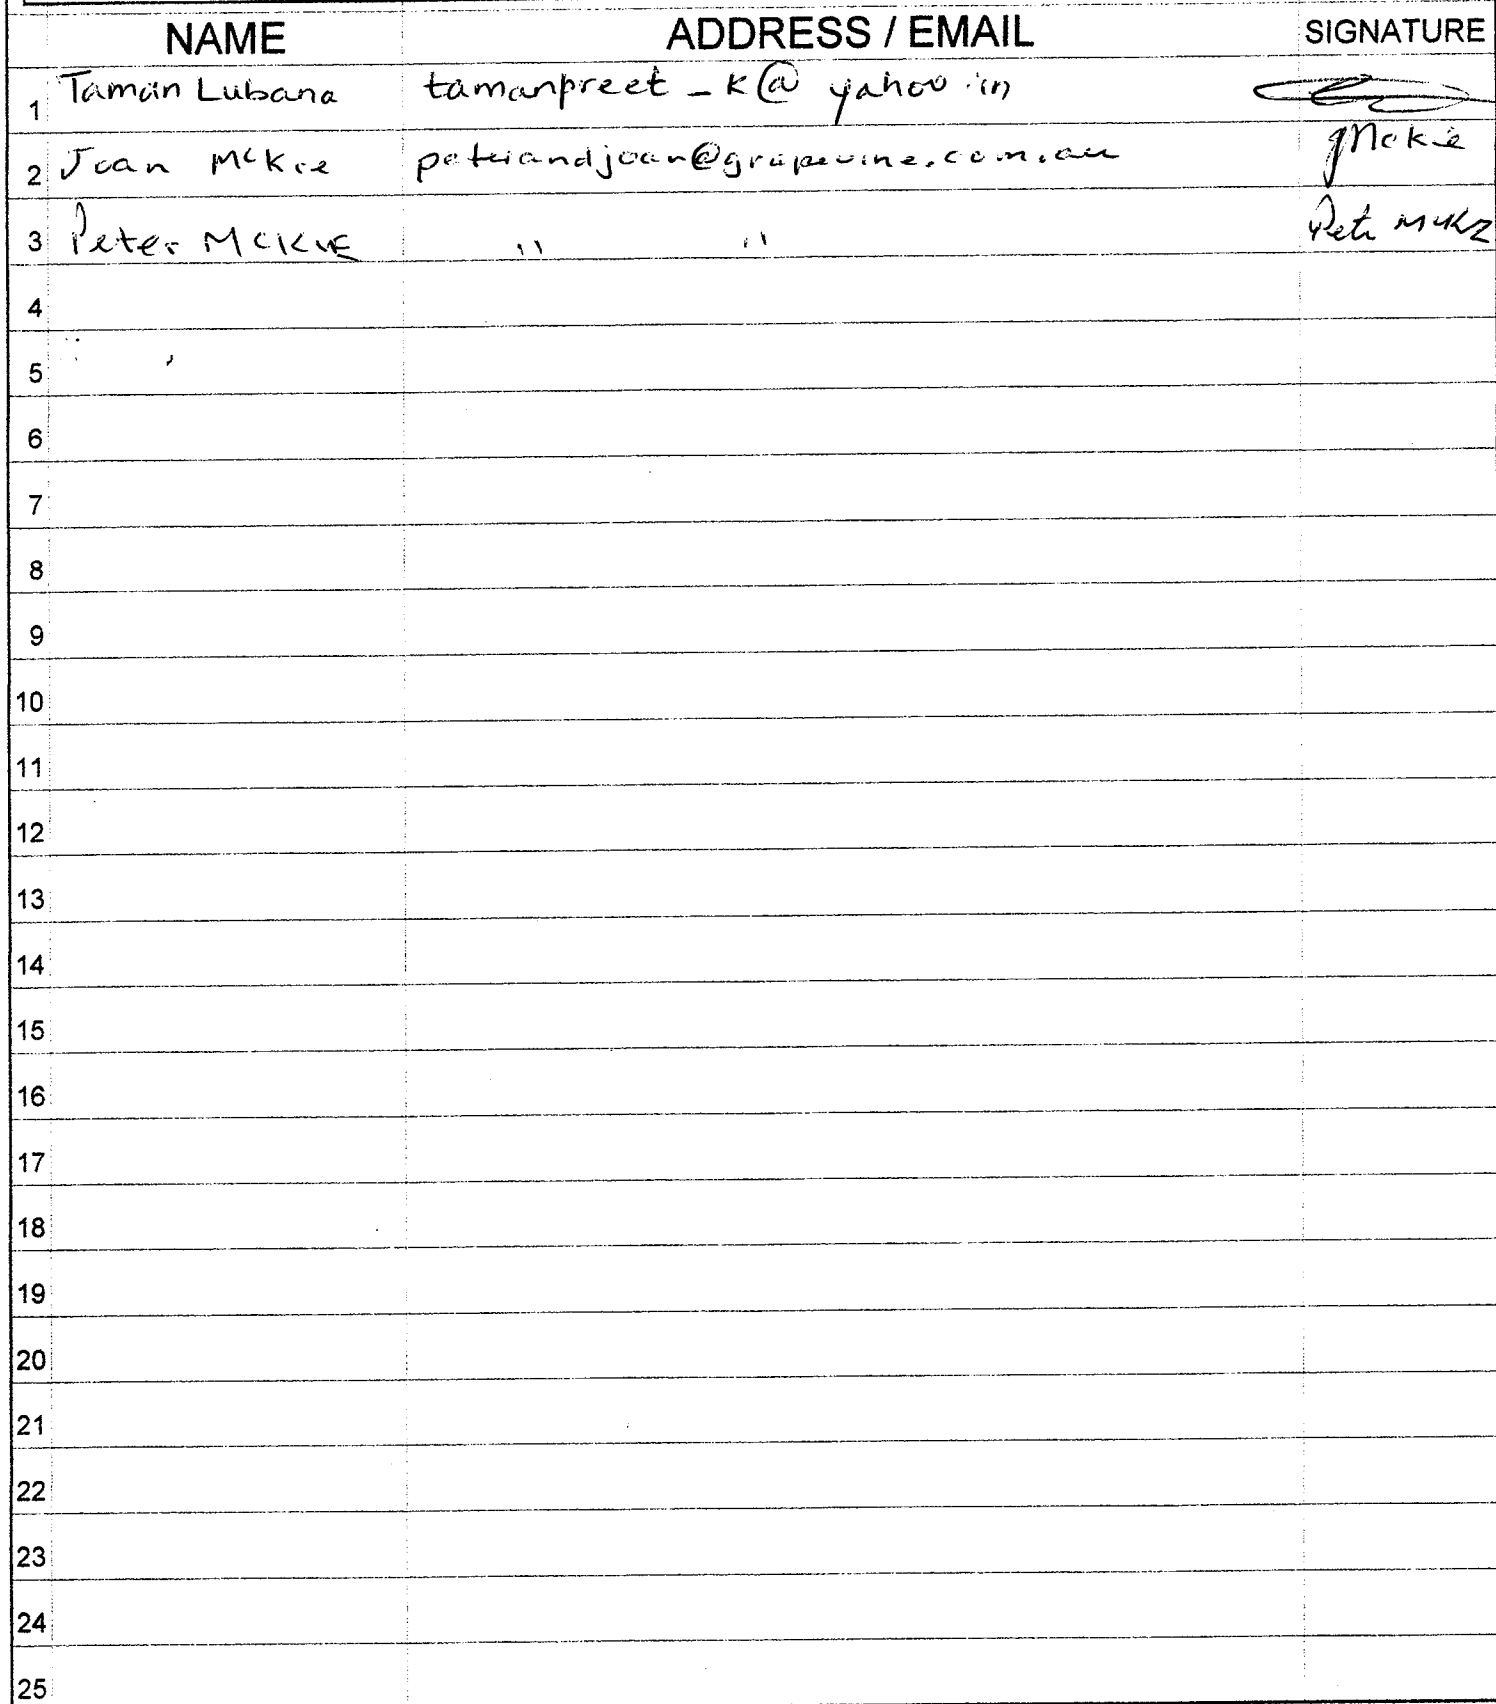 NAME ADDRESS / EMAIL SIGNATURE
1 Taman Lubana tamanpreet_k@yahoo.in
2 Joan McKie peterandjoan@grapevine.com.au JMckie
3 Peter McKIE " " Pete McK
4
5
6
7
8
9
10
11
12
13
14
15
16
17
18
19
20
21
22
23
24
25